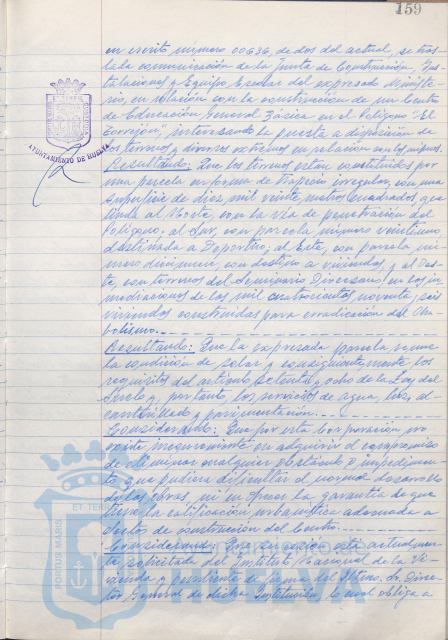 159
en escrito número 00636, de dos del actual, se tras
lada comunicación de la Junta de Construcción, Ins
talaciones y Equipo Escolar del expresado Ministe
rio, en relación con la construcción de un Centro
de Educación General Básica en el Polígono "El
Torrejón", interesando la puesta a disposición de
los terrenos y diversos extremos en relación con los mismos.
AYUNTAMIENTO DE HUELVA
Resultando: Que los terrenos están constituidos por
una parcela en forma de Trapecio irregular, con una
superficie de diez mil veinte metros cuadrados, que
linda al Norte, con la vía de penetración del
Polígono; al Sur, con parcela número veintiuno
destinada a Deportivo; al Este, con parcela nú
mero diecinueve, con destino a viviendas, y al Oes
te, con terrenos del Seminario Diocesano, en las in
mediaciones de las mil cuatrocientas noventa y seis
viviendas construidas para erradicación del Cha
bolismo.
Resultando: Que la expresada parcela reune
la condición de solar y consiguientemente, los
requisitos del artículo setenta y ocho de la Ley del
Suelo y, por tanto, los servicios de agua, luz, al
cantarillado y pavimentación.
Considerando: Que por esta Corporación no
existe inconveniente en adquirir el compromiso
de eliminar cualquier obstáculo o impedimen
to que pudiera dificultar el normal desarrollo
de las obras, ni en ofrecer la garantía de que
tiene la calificación urbanística adecuada a
efectos de construcción del Centro.
Considerando: Que su cesión está actualmen
te solicitada del Instituto Nacional de la Vi
vienda y pendiente de firma del Iltmo. Sr. Direc
tor General de dicho Instituto, lo cual obliga a
PORTUS MARIS
ET TERR
HUELVA